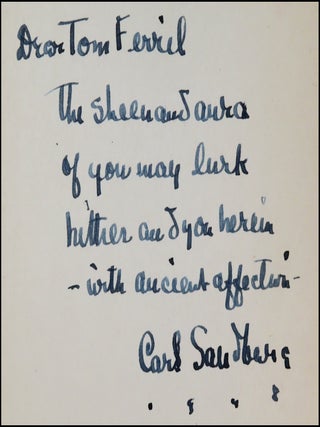 Dear Tom Ferril
The sheen and aura
of you may lurk
hither and yon herein
- with ancient affection -
Carl Sandburg
1948